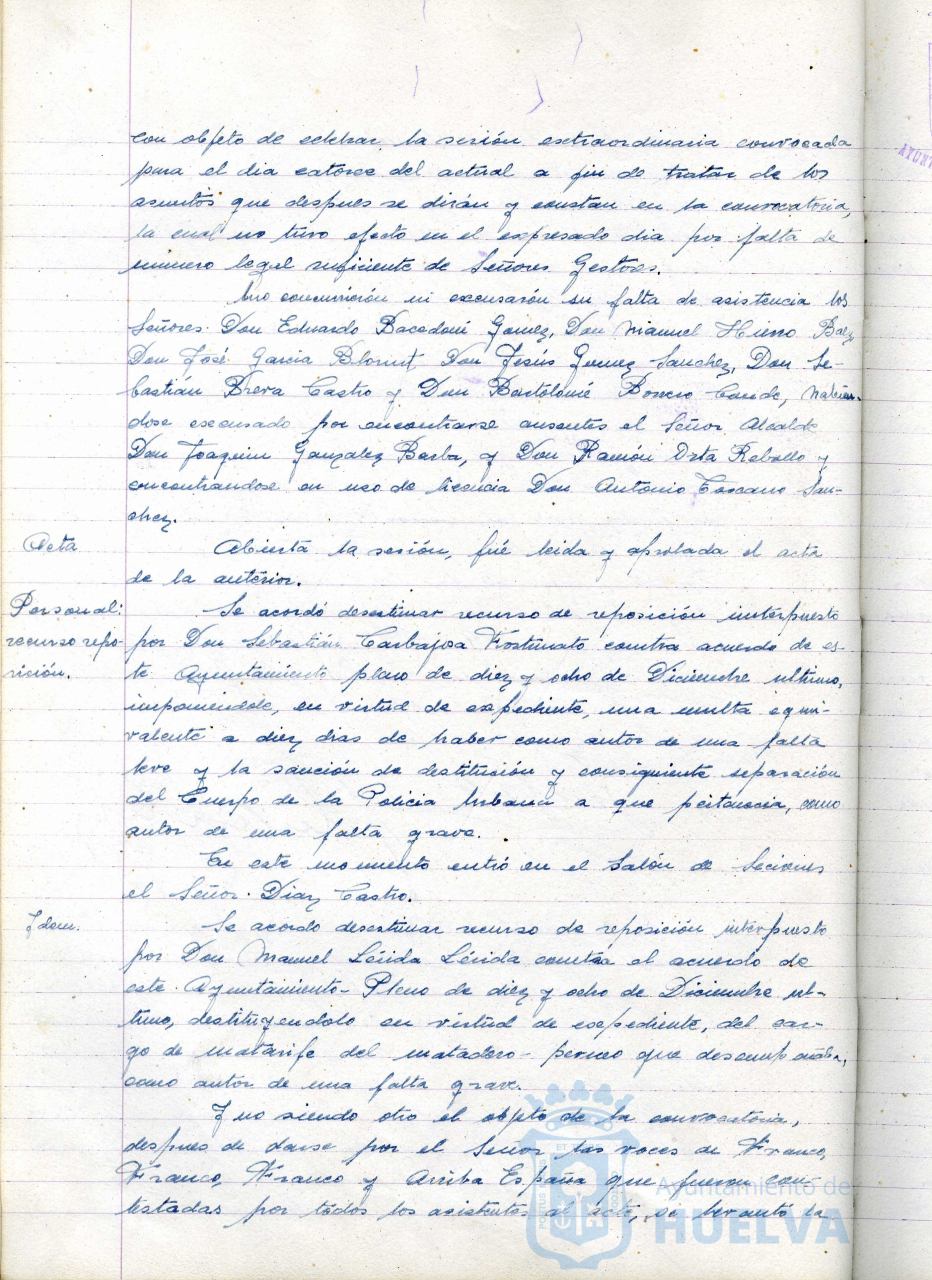 con objeto de celebrar la sesión extraordinaria convocada
para el dia catorce del actual a fin de tratar de los
asuntos que despues se dirán y constan en la convocatoria,
la cual no tuvo efecto en el expresado dia por falta de
numero legal suficiente de Señores Gestores.
No concurrieron ni excusaron su falta de asistencia los
Señores: Don Eduardo Bacedoné Gomez, Don Manuel Hierro Baez,
Don José Garcia Don Jesús Gomez Sanchez, Don Se-
bastián Brera Castro y Don Bartolomé Romero Conde, habien-
dose excusado por encontrarse ausentes el Señor Alcalde
Don Joaquin Gonzalez Barba, y Don Ramón Orta Rebollo y
encontrandose en uso de licencia Don Antonio Toscano San-
chez.
Acta
Abierta la sesión, fué leida y aprobada el acta
de la anterior.
Personal:
recurso repo-
sición.
Se acordó desestimar recurso de reposición interpuesto
por Don Sebastián Carbajosa contra acuerdo de es-
te Ayuntamiento pleno de diez y ocho de Diciembre ultimo,
imponiendole, en virtud de expediente, una multa equi-
valente a diez dias de haber como autor de una falta
leve y la sanción de destitución y consiguiente separación
del Cuerpo de la Policia Urbana a que pertenecia, como
autor de una falta grave.
En este momento entró en el Salón de Seciones
el Señor Diaz Castro.
Idem.
Se acordo desestimar recurso de reposición interpuesto
por Don Manuel Lérida Lérida contra el acuerdo de
este Ayuntamiento-Pleno de diez y ocho de Diciembre ul-
timo, destituyendolo en virtud de expediente, del car-
go de matarife del matadero que desempeñaba,
como autor de una falta grave.
Y no siendo otro el objeto de la convocatoria,
despues de darse por el Señor las voces de Franco,
Franco, Franco y Arriba España que fueron con-
testadas por todos los asistentes al acto, se levantó la
Ayuntamiento de
HUELVA